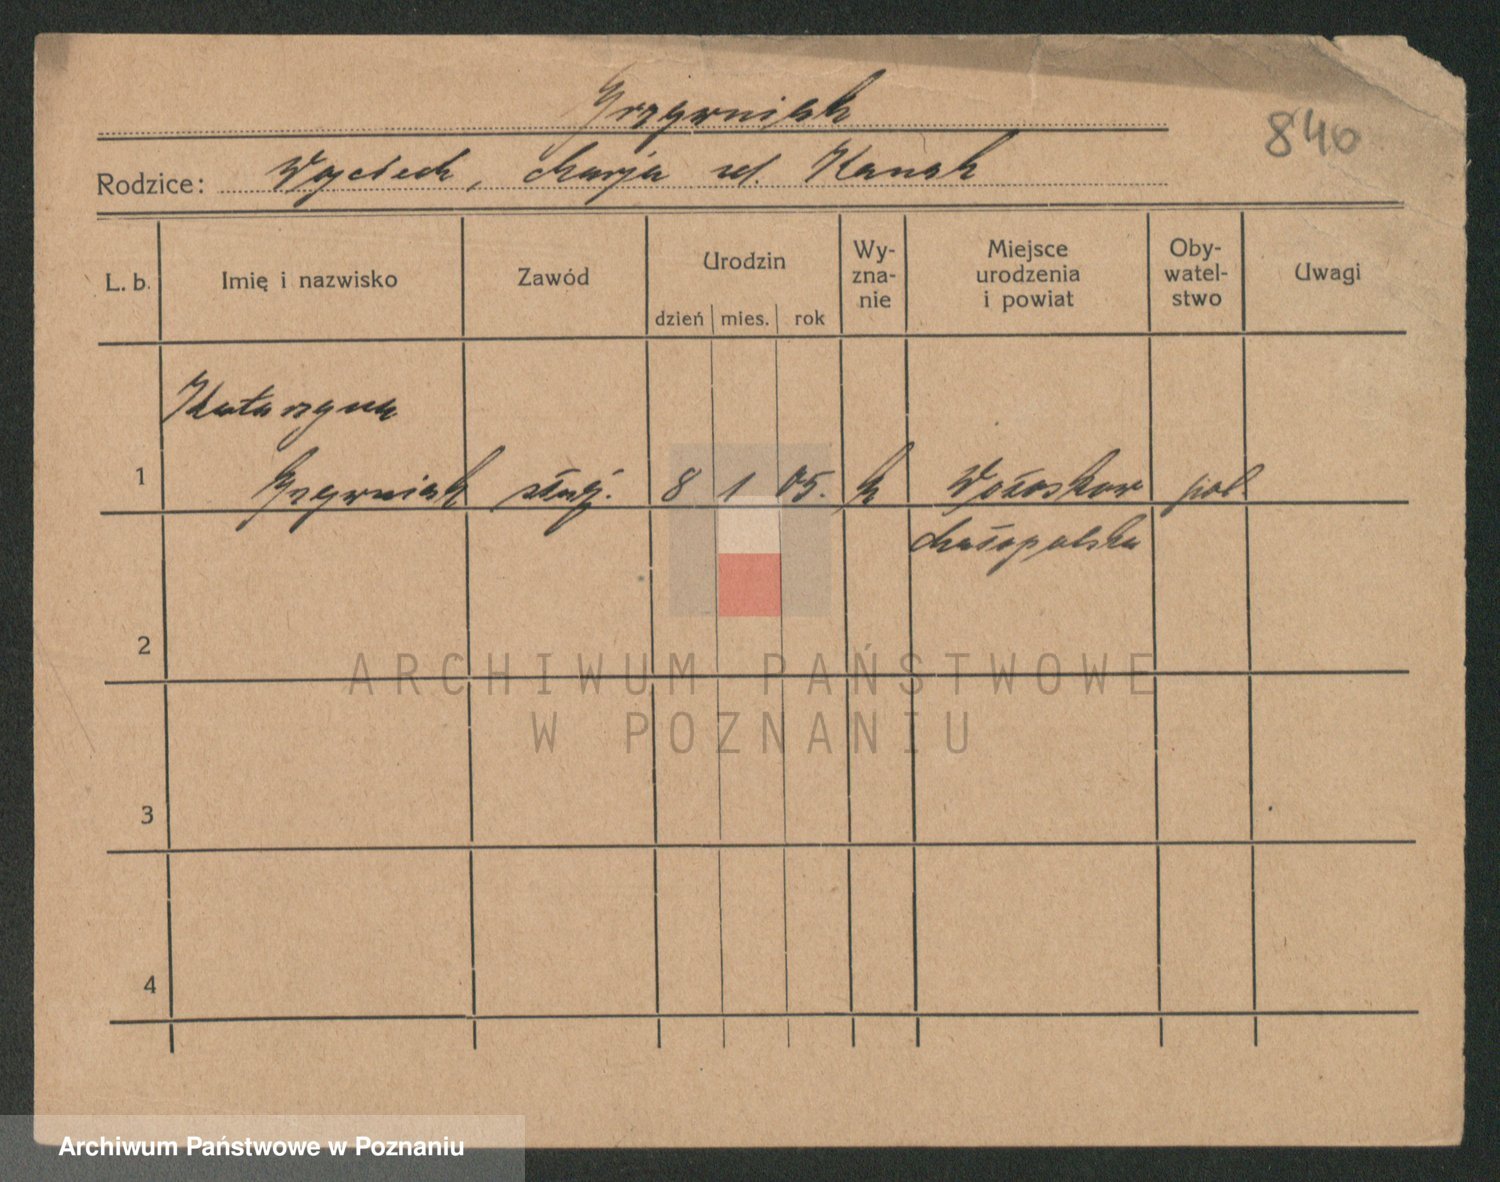 Grzywniak
840
Rodzice: Wojciech, Marja zd. Kanak
L. b. Imię i nazwisko Zawód Urodzin dzień mies. rok Wy-zna-nie Miejsce urodzenia i powiat Oby-watel-stwo Uwagi
Katarzyna
1 Grzywniak służ. 8 1 05. k pol.
Małopolska
2
ARCHIWUM PAŃSTWOWE
W POZNANIU
3
4
Archiwum Państwowe w Poznaniu